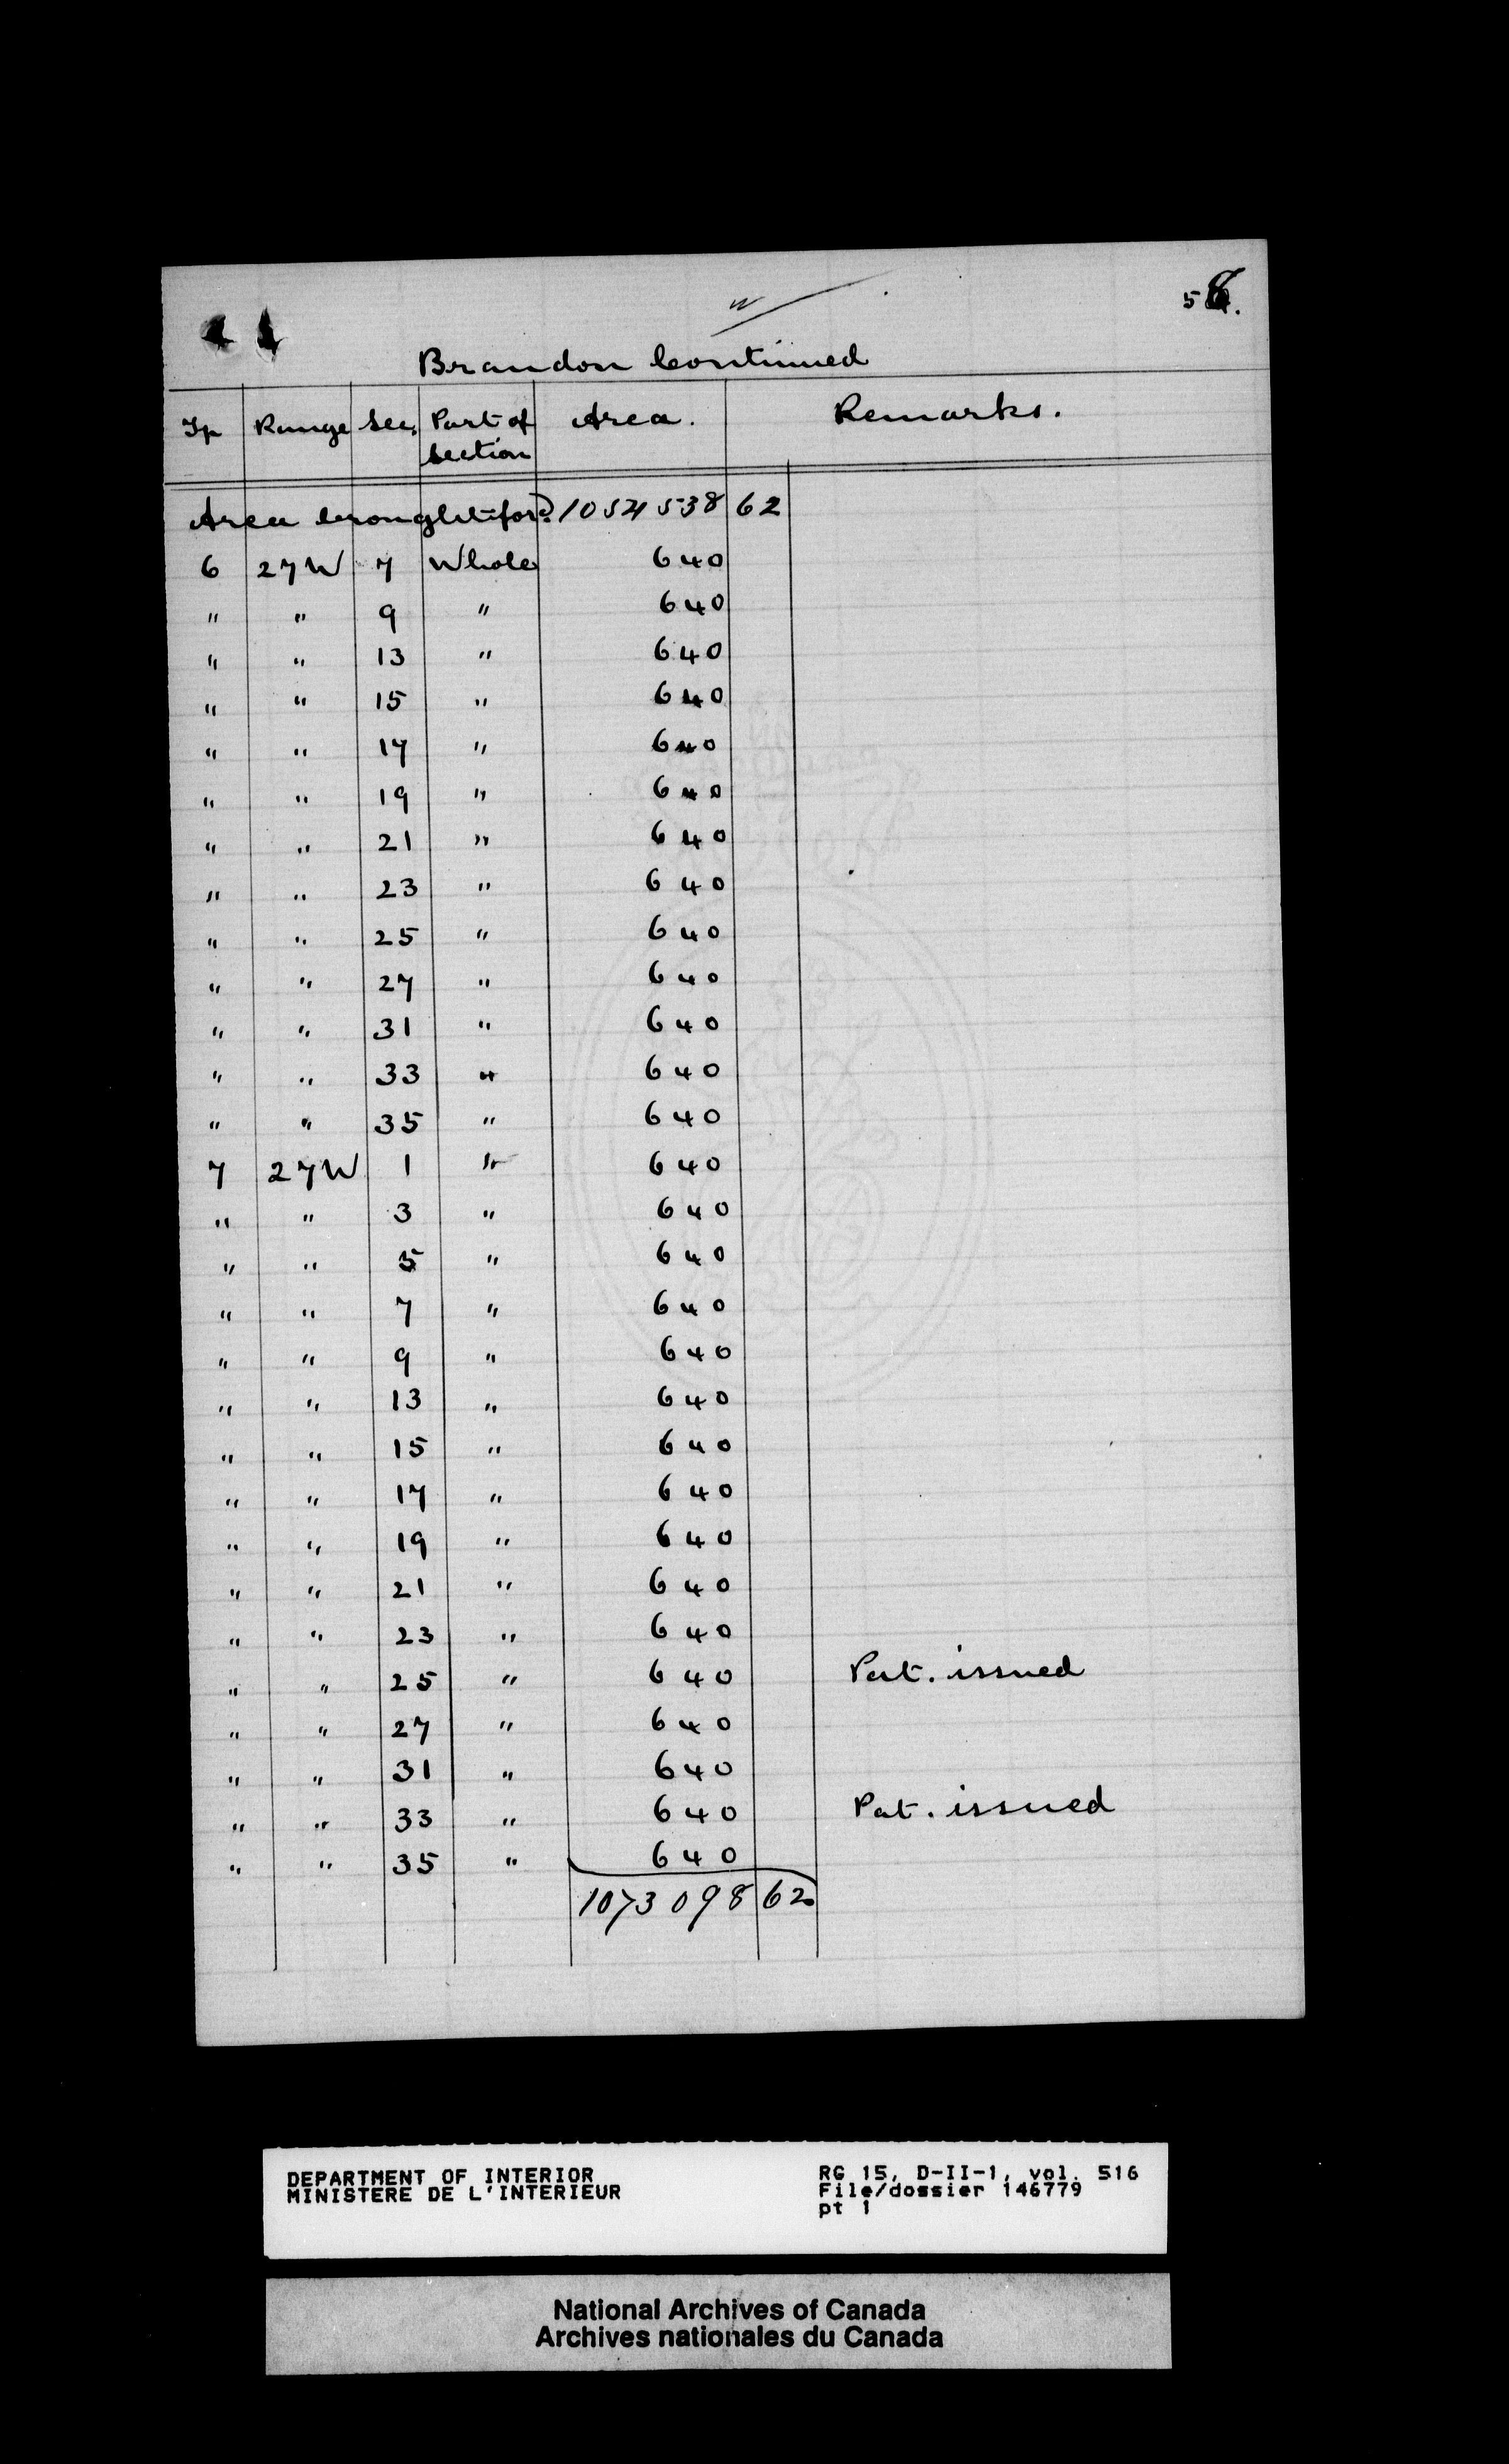 58.
Brandon Continued
Tp Range Sec. Part of section Area. Remarks.
Area brought for'd. 1054538 62
6 27W 7 Whole 640
" " 9 " 640
" " 13 " 640
" " 15 " 640
" " 17 " 640
" " 19 " 640
" " 21 " 640
" " 23 " 640
" " 25 " 640
" " 27 " 640
" " 31 " 640
" " 33 " 640
" " 35 " 640
7 27W 1 " 640
" " 3 " 640
" " 5 " 640
" " 7 " 640
" " 9 " 640
" " 13 " 640
" " 15 " 640
" " 17 " 640
" " 19 " 640
" " 21 " 640
" " 23 " 640
" " 25 " 640 Pat. issued
" " 27 " 640
" " 31 " 640
" " 33 " 640 Pat. issued
" " 35 " 640
1073098 62
DEPARTMENT OF INTERIOR
MINISTERE DE L'INTERIEUR
RG 15, D-II-1, vol. 516
File/dossier 146779
pt 1
National Archives of Canada
Archives nationales du Canada